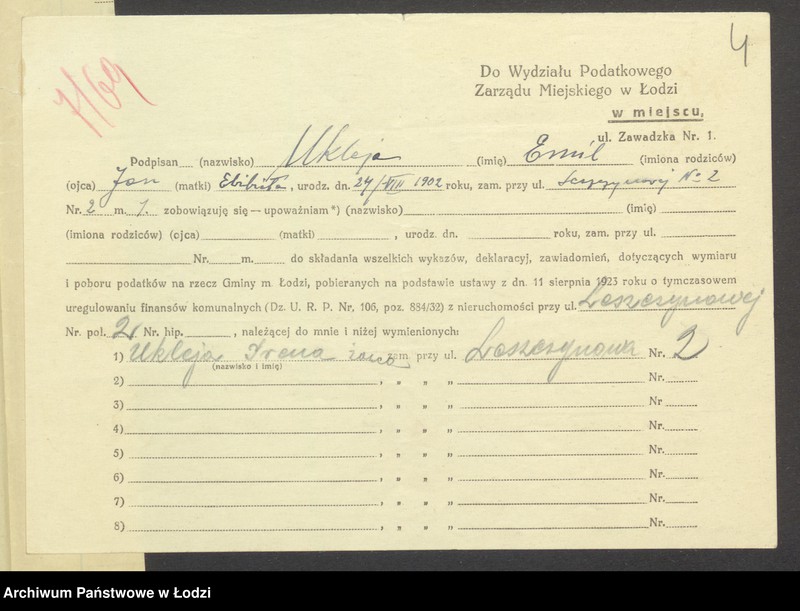 4
7/69
Do Wydziału Podatkowego
Zarządu Miejskiego w Łodzi
w miejscu,
ul. Zawadzka Nr. 1.
Podpisan (nazwisko) Ukleja (imię) Emil (imiona rodziców)
(ojca) Jan (matki) , urodz. dn. 24/VIII 1902 roku, zam. przy ul. No 2
Nr. 2 m. 1. zobowiązuję się — upoważniam *) (nazwisko) (imię)
(imiona rodziców) (ojca) (matki) , urodz. dn. roku, zam. przy ul.
Nr. m. do składania wszelkich wykazów, deklaracyj, zawiadomień, dotyczących wymiaru
i poboru podatków na rzecz Gminy m. Łodzi, pobieranych na podstawie ustawy z dn. 11 sierpnia 1923 roku o tymczasowem
uregulowaniu finansów komunalnych (Dz. U. R. P. Nr, 106, poz. 884/32) z nieruchomości przy ul. Leszczynowej
Nr. pol. 2 Nr. hip. , należącej do mnie i niżej wymienionych:
1) Ukleja Irena żona zam. przy ul. Leszczynowa Nr. 2
(nazwisko i imię)
2) , „ „ „ Nr.
3) , „ „ „ Nr
4) , „ „ „ Nr.
5) , „ „ „ Nr.
6) , „ „ „ Nr.
7) , „ „ „ Nr.
8) , „ „ „ Nr.
Archiwum Państwowe w Łodzi